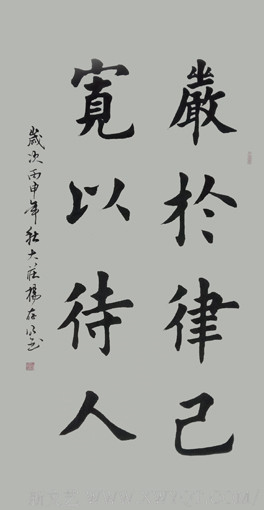 嚴於律己
寬以待人
歲次丙申年秋大莊楊存